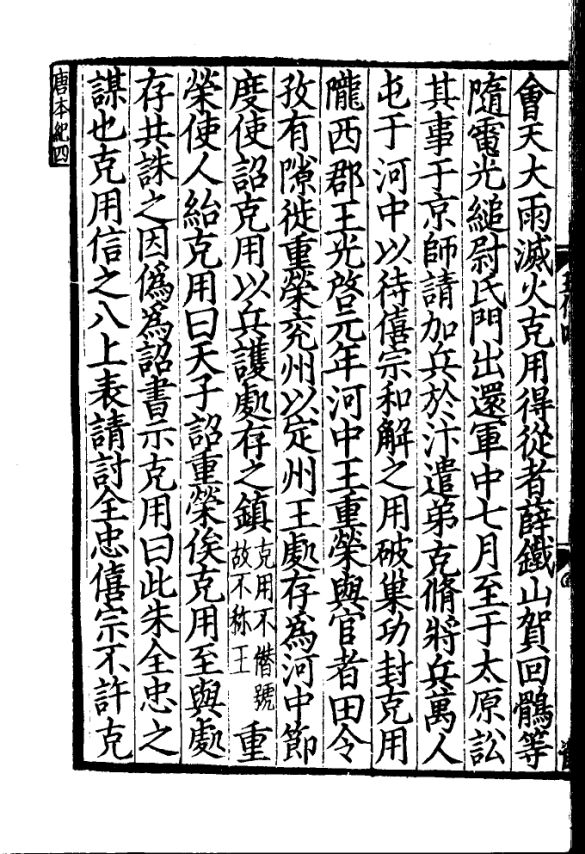 會天大雨滅火克用得從者薛鐵山賀回鶻等
隨電光縋尉氏門出還軍中七月至于太原訟
其事于京師請加兵於汴遣弟克脩將兵萬人
屯于河中以待僖宗和解之用破巢功封克用
隴西郡王光啓元年河中王重榮與宦者田令
孜有隙徙重榮兖州以定州王處存為河中節
度使詔克用以兵護處存之鎮克用不僭號故不称王重
榮使人紿克用曰天子詔重榮俟克用至與處
存共誅之因偽為詔書示克用曰此朱全忠之
謀也克用信之八上表請討全忠僖宗不許克
唐本紀四